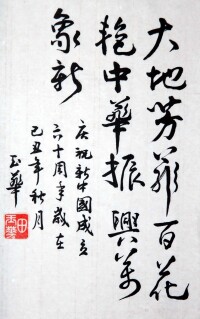 大地芳菲百花
艳中華振興萬
象新
庆祝新中國成立
六十周年歲在
己丑年秋月
玉華
田玉華